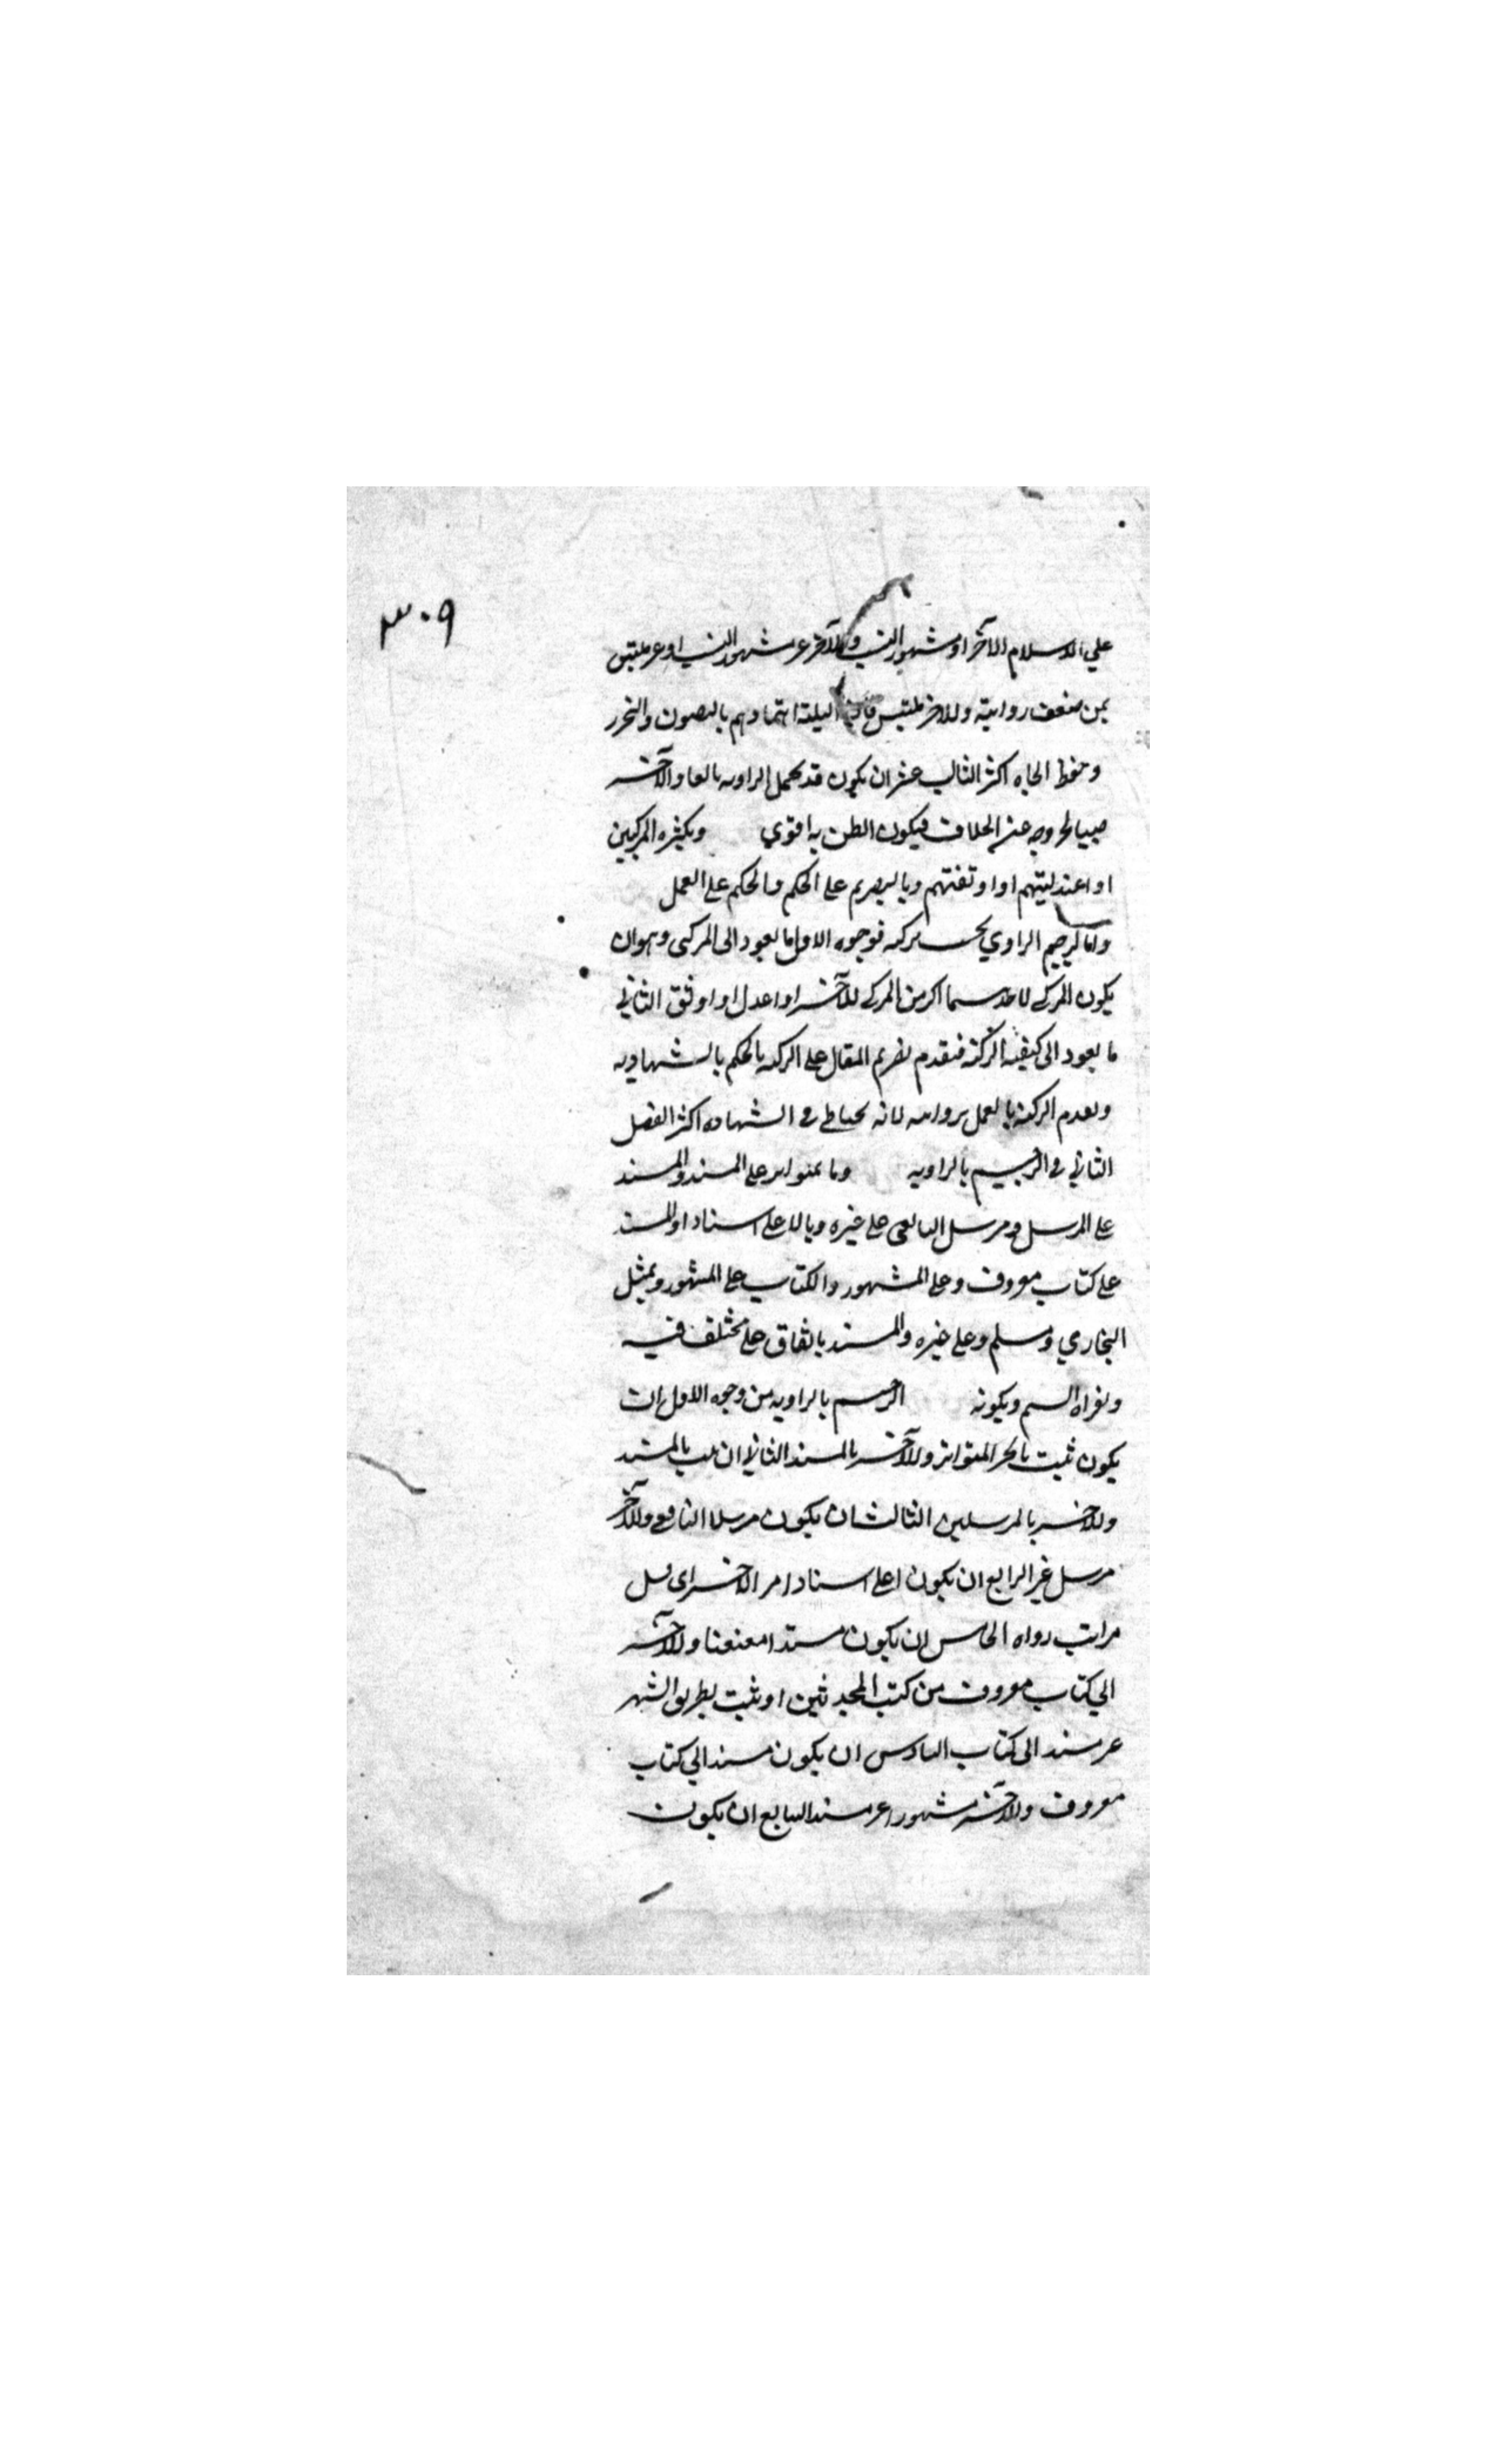 ٣٠٩
علي الاسلام الآخر او مشهور النسب والآخر غير مشهور النسب او غير ملتبس
بمن ضعف روايته وللاخر ملتبس اهتمامهم بالتصون والتحرز
وحفظ الجاه اكثر الثالث عشر ان يكون قد تحمل الراويه بالغا والآخر
صبيا لخروجه عن الخلاف فيكون الظن به اقوي وبكثره المزكيين
او اعدليتهم او اوثقتهم وبالتصريح على الحكم والحكم على العمل
واما ترجيح الراوي بحسب تزكيه فوجوه الاول ما يعود الى المزكى وهو ان
يكون المزكى لاحدهما اكثر من المزكى للآخر او اعدل او اوثق الثاني
ما يعود الى كيفيه التزكيه فيقدم تصريح المقال على التزكيه بالحكم بالشهاديه
وتقدم التزكيه بالعمل بروايته لانه يحتاط في الشهاده اكثر الفصل
الثاني في الترجيح بالراويه وما بمتواتر على المسند والمسند
على المرسل ومرسل التابعى على غيره وبالاعلى اسنادا والمسند
على كتاب معروف وعلى المشهور والكتاب على المشهور وبمثل
البخاري ومسلم وعلى غيره والمسند باتفاق على مختلف فيه
وبقراه الشيخ وبكونه الترجيح بالراويه من وجوه الاول ان
يكون ثبت بالخبر المتواتر وللآخر بالمسند الثاني ان ثبت بالمسند
وللاخر بالمرسلين الثالث ان يكون مرسل التابعى وللآخر
مرسل غير الرابع ان يكون اعلى اسنادا من الاخر اى قل
مراتب رواه الخامس ان يكون مسندا معنعنا وللآخر
الي كتاب معروف من كتب المحدثين او ثبت بطريق الشهر
غير مسند الى كتاب السادس ان يكون مسند الي كتاب
معروف وللآخر مشهورا غير مسند السابع ان يكون